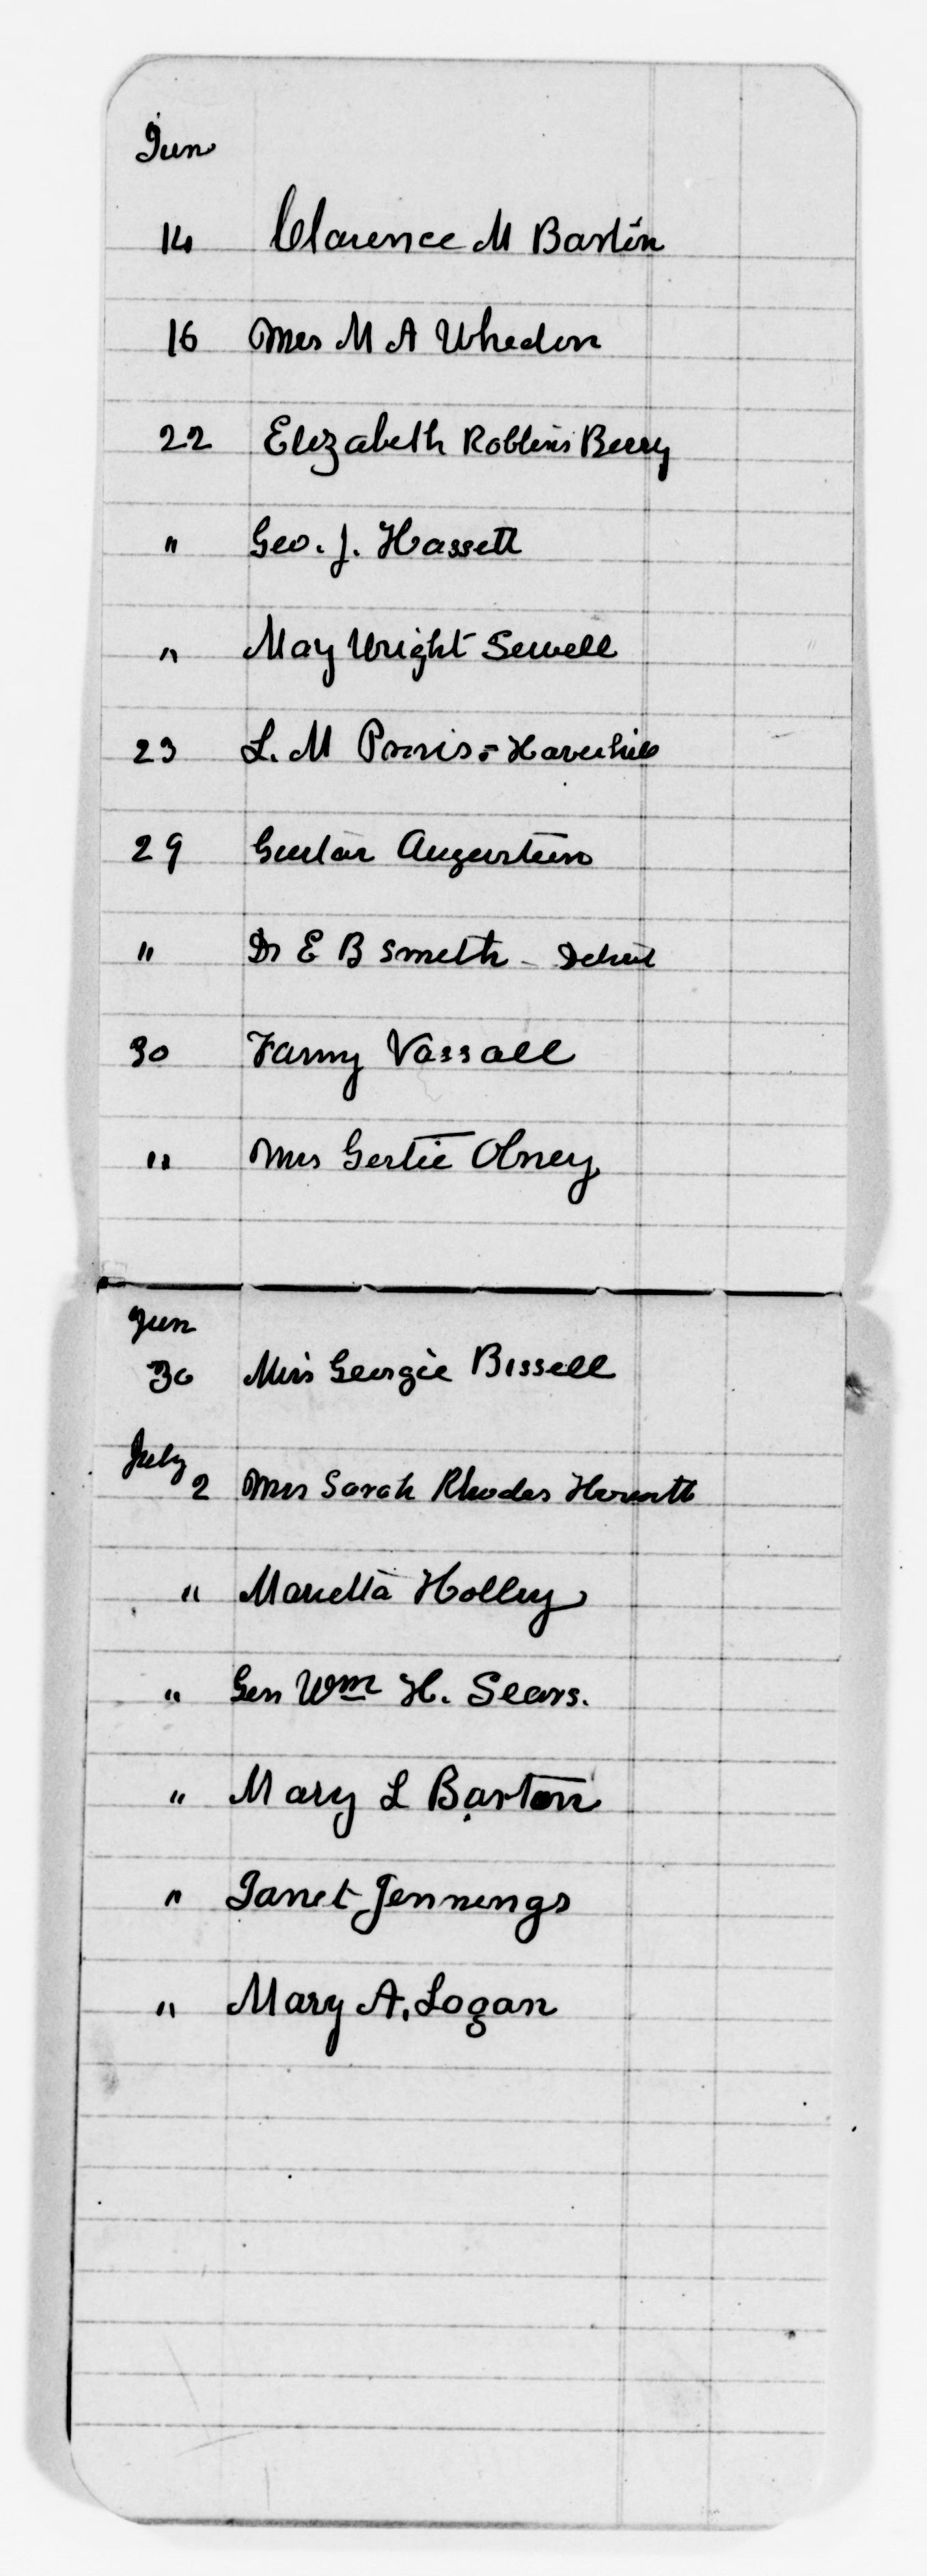 Jun
14 Clarence M Barton
16 Mrs M A Whedon
22 Elizabeth Robbins Berry
" Geo. J. Hassett
" May Wright Sewell
23 L. M - Haverhill
29 Gustav Augustein
" Dr E B Smith - Detroit
30 Fanny Vassall
" Mrs Gertie Olney
Jun
30 Miss Georgie Bissell
July
2 Mrs Sarah Rhodes
" Marietta Holley
" Gen Wm H. Sears.
" Mary L Barton
" Janet Jennings
" Mary A. Logan